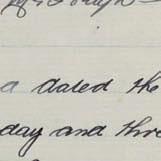 a dated the
day and thre